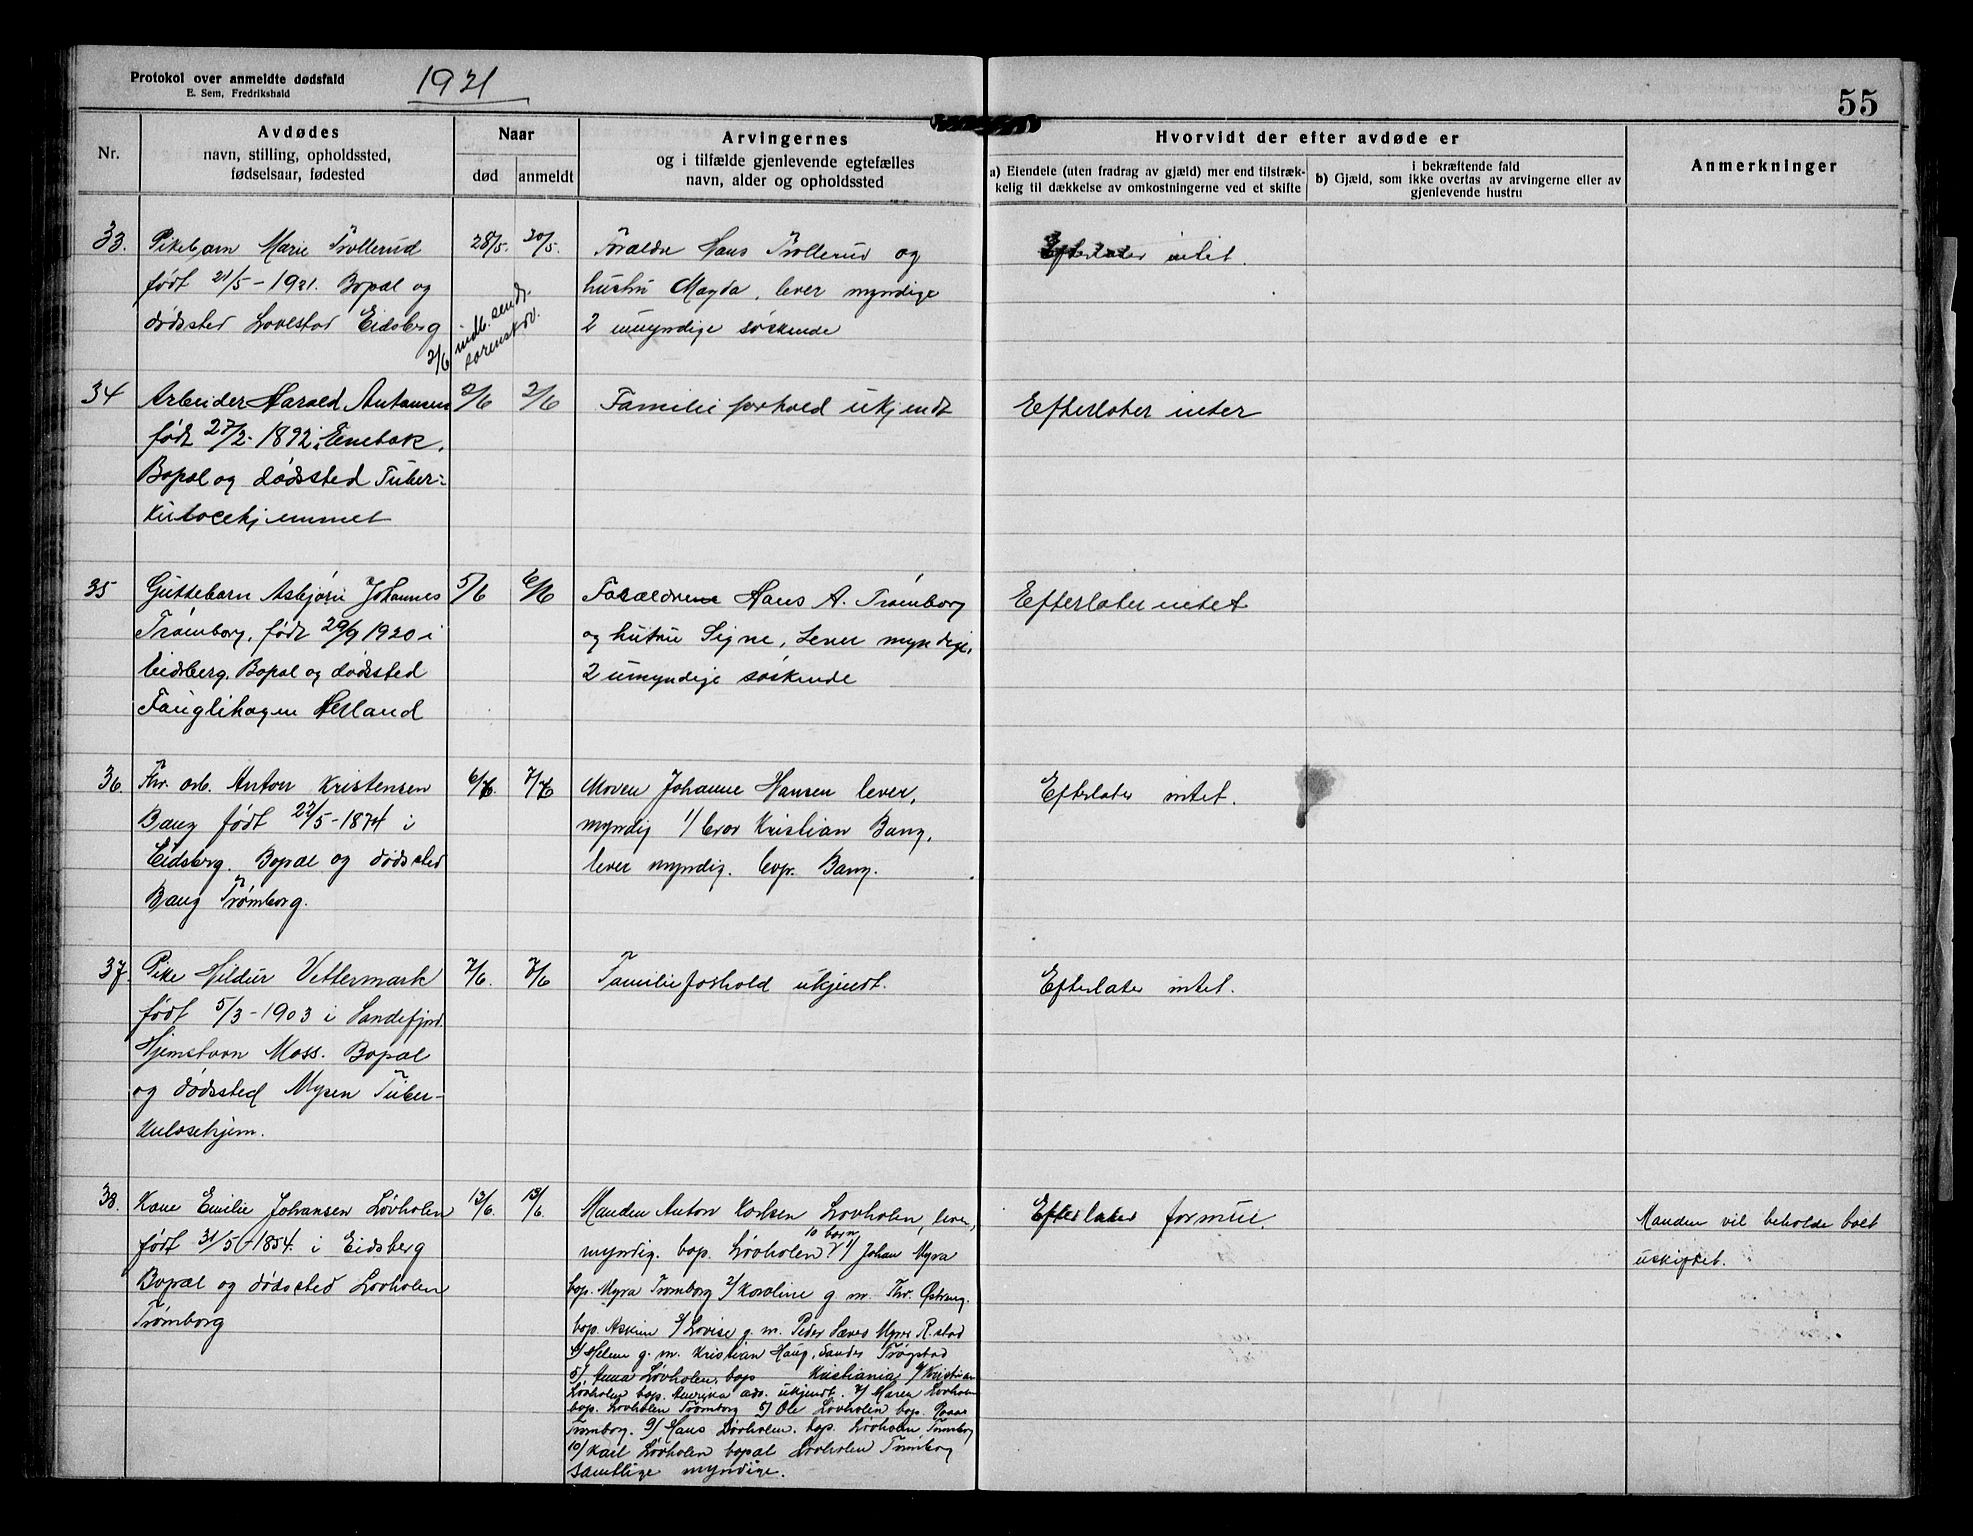 Protokol over anmeldte dødsfald
E. Sem, Fredrikshald
1921
55
Nr.
Avdødes
navn, stilling, opholdssted,
fødselsaar, fødested
Naar
død
anmeldt
Arvingernes
og i tilfælde gjenlevende egtefælles
navn, alder og opholdssted
Hvorvidt der efter avdøde er
a) Eiendele (uten fradrag av gjæld) mer end tilstræk-
kelig til dækkelse av omkostningerne ved et skifte
i bekræftende fald
b) Gjæld, som ikke overtas av arvingerne eller av
gjenlevende hustru
Anmerkninger
33. Pikebarn Marie Trollerud
født 21/5-1921. Bopæl og
dødssted Lovestad Eidsberg
28/5. 30/5.
2/6 indb. sendt
sorenskriv.
Forældre Hans Trollerud og
hustru Magda, lever myndige
2 umyndige søskende
Efterlater intet.
34 Arbeider Harald Antonsen
født 27/2-1892 i Enebak.
Bopæl og dødssted Tuber-
kulosehjemmet
2/6 2/6
Familieforhold ukjendt
Efterlater intet
35 Guttebarn Asbjørn Johannes
Trømborg, født 29/9 1920 i
Eidsberg. Bopæl og dødssted
Fuglihagen Herland
5/6 6/6
Forældrene Hans A. Trømborg
og hustru Signe, Lever myndige,
2 umyndige søskende
Efterlater intet
36. Fhv. arb. Anton Kristensen
Baug født 22/5-1874 i
Eidsberg. Bopæl og dødssted
Baug Trømborg.
6/6. 7/6
Moren Johanne Hansen lever,
myndig 1/ bror Kristian Baug,
lever myndig. bop. Baug.
Efterlater intet.
37. Pike Hildur Vettermark
født 5/3-1903 i Sandefjord.
Hjemstavn Moss. Bopæl
og dødssted Mysen Tuber-
kulosehjem.
7/6. 7/6
Familieforhold ukjendt.
Efterlater intet.
38. Kone Emilie Johansen Løvholen
født 31/5-1854. i Eidsberg
Bopæl og dødssted Løvholen
Trømborg
13/6. 13/6.
Manden Anton Karlsen Løvholen, lever,
10 barn
myndig. bop. Løvholen 1/ Johan Myra
bop. Myra Trømborg 2/ Karoline g. m. Thr. Østreng.
bop. Askim 3/ Lovise g. m. Peder Sæves Myrer R.stad
4/ Helene g. m. Kristian Haug, Sandes Trøgstad
5/ Anna Løvholen, bops Kristiania 6/ Kristian
Løvholen bop. Amerika adr. ukjendt. 7/ Maren Løvholen
bop. Løvholen Trømborg 8/ Ole Løvholen bop.
Trømborg. 9/ Hans Løvholen. bop. Løvholen Trømborg
10/ Karl Løvholen bopæl Løvholen Trømborg
samtlige myndige.
Efterlater formue.
Manden vil beholde boet
uskiftet.